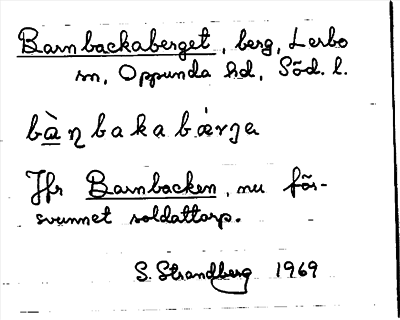 Barnbackaberget, berg, Lerbo
sn, Oppunda hd, Söd. l.
bàɳbakabærja
Jfr Barnbacken, nu för-
svunnet soldattorp.
S. Strandberg 1969